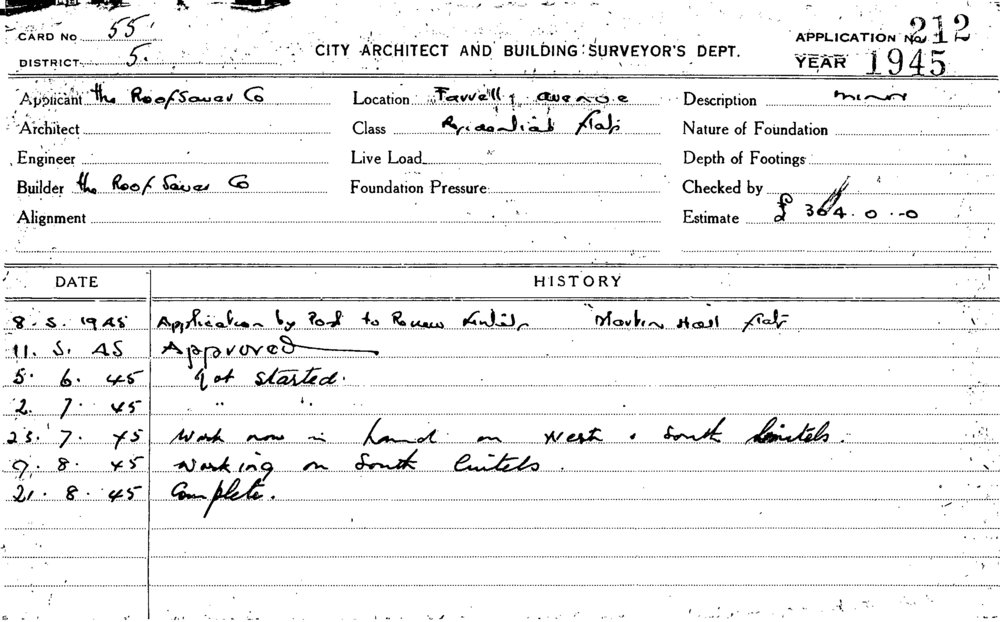 CARD No 55 APPLICATION No. 212
DISTRICT 5. CITY ARCHITECT AND BUILDING SURVEYOR'S DEPT. YEAR 1945
Applicant the Roof Saver Co Location Farrell's avenue Description minor
Architect Class Residential flats Nature of Foundation
Engineer Live Load Depth of Footings
Builder the Roof Saver Co Foundation Pressure Checked by
Alignment Estimate £ 364.0.0
DATE HISTORY
8.5.1945 Application by Post to Renew Lintels Hall flats
11.5.45 Approved
5.6.45 Not started.
2.7.45 " "
23.7.45 Work now in hand on West & South lintels.
9.8.45 Working on South lintels.
21.8.45 Complete.